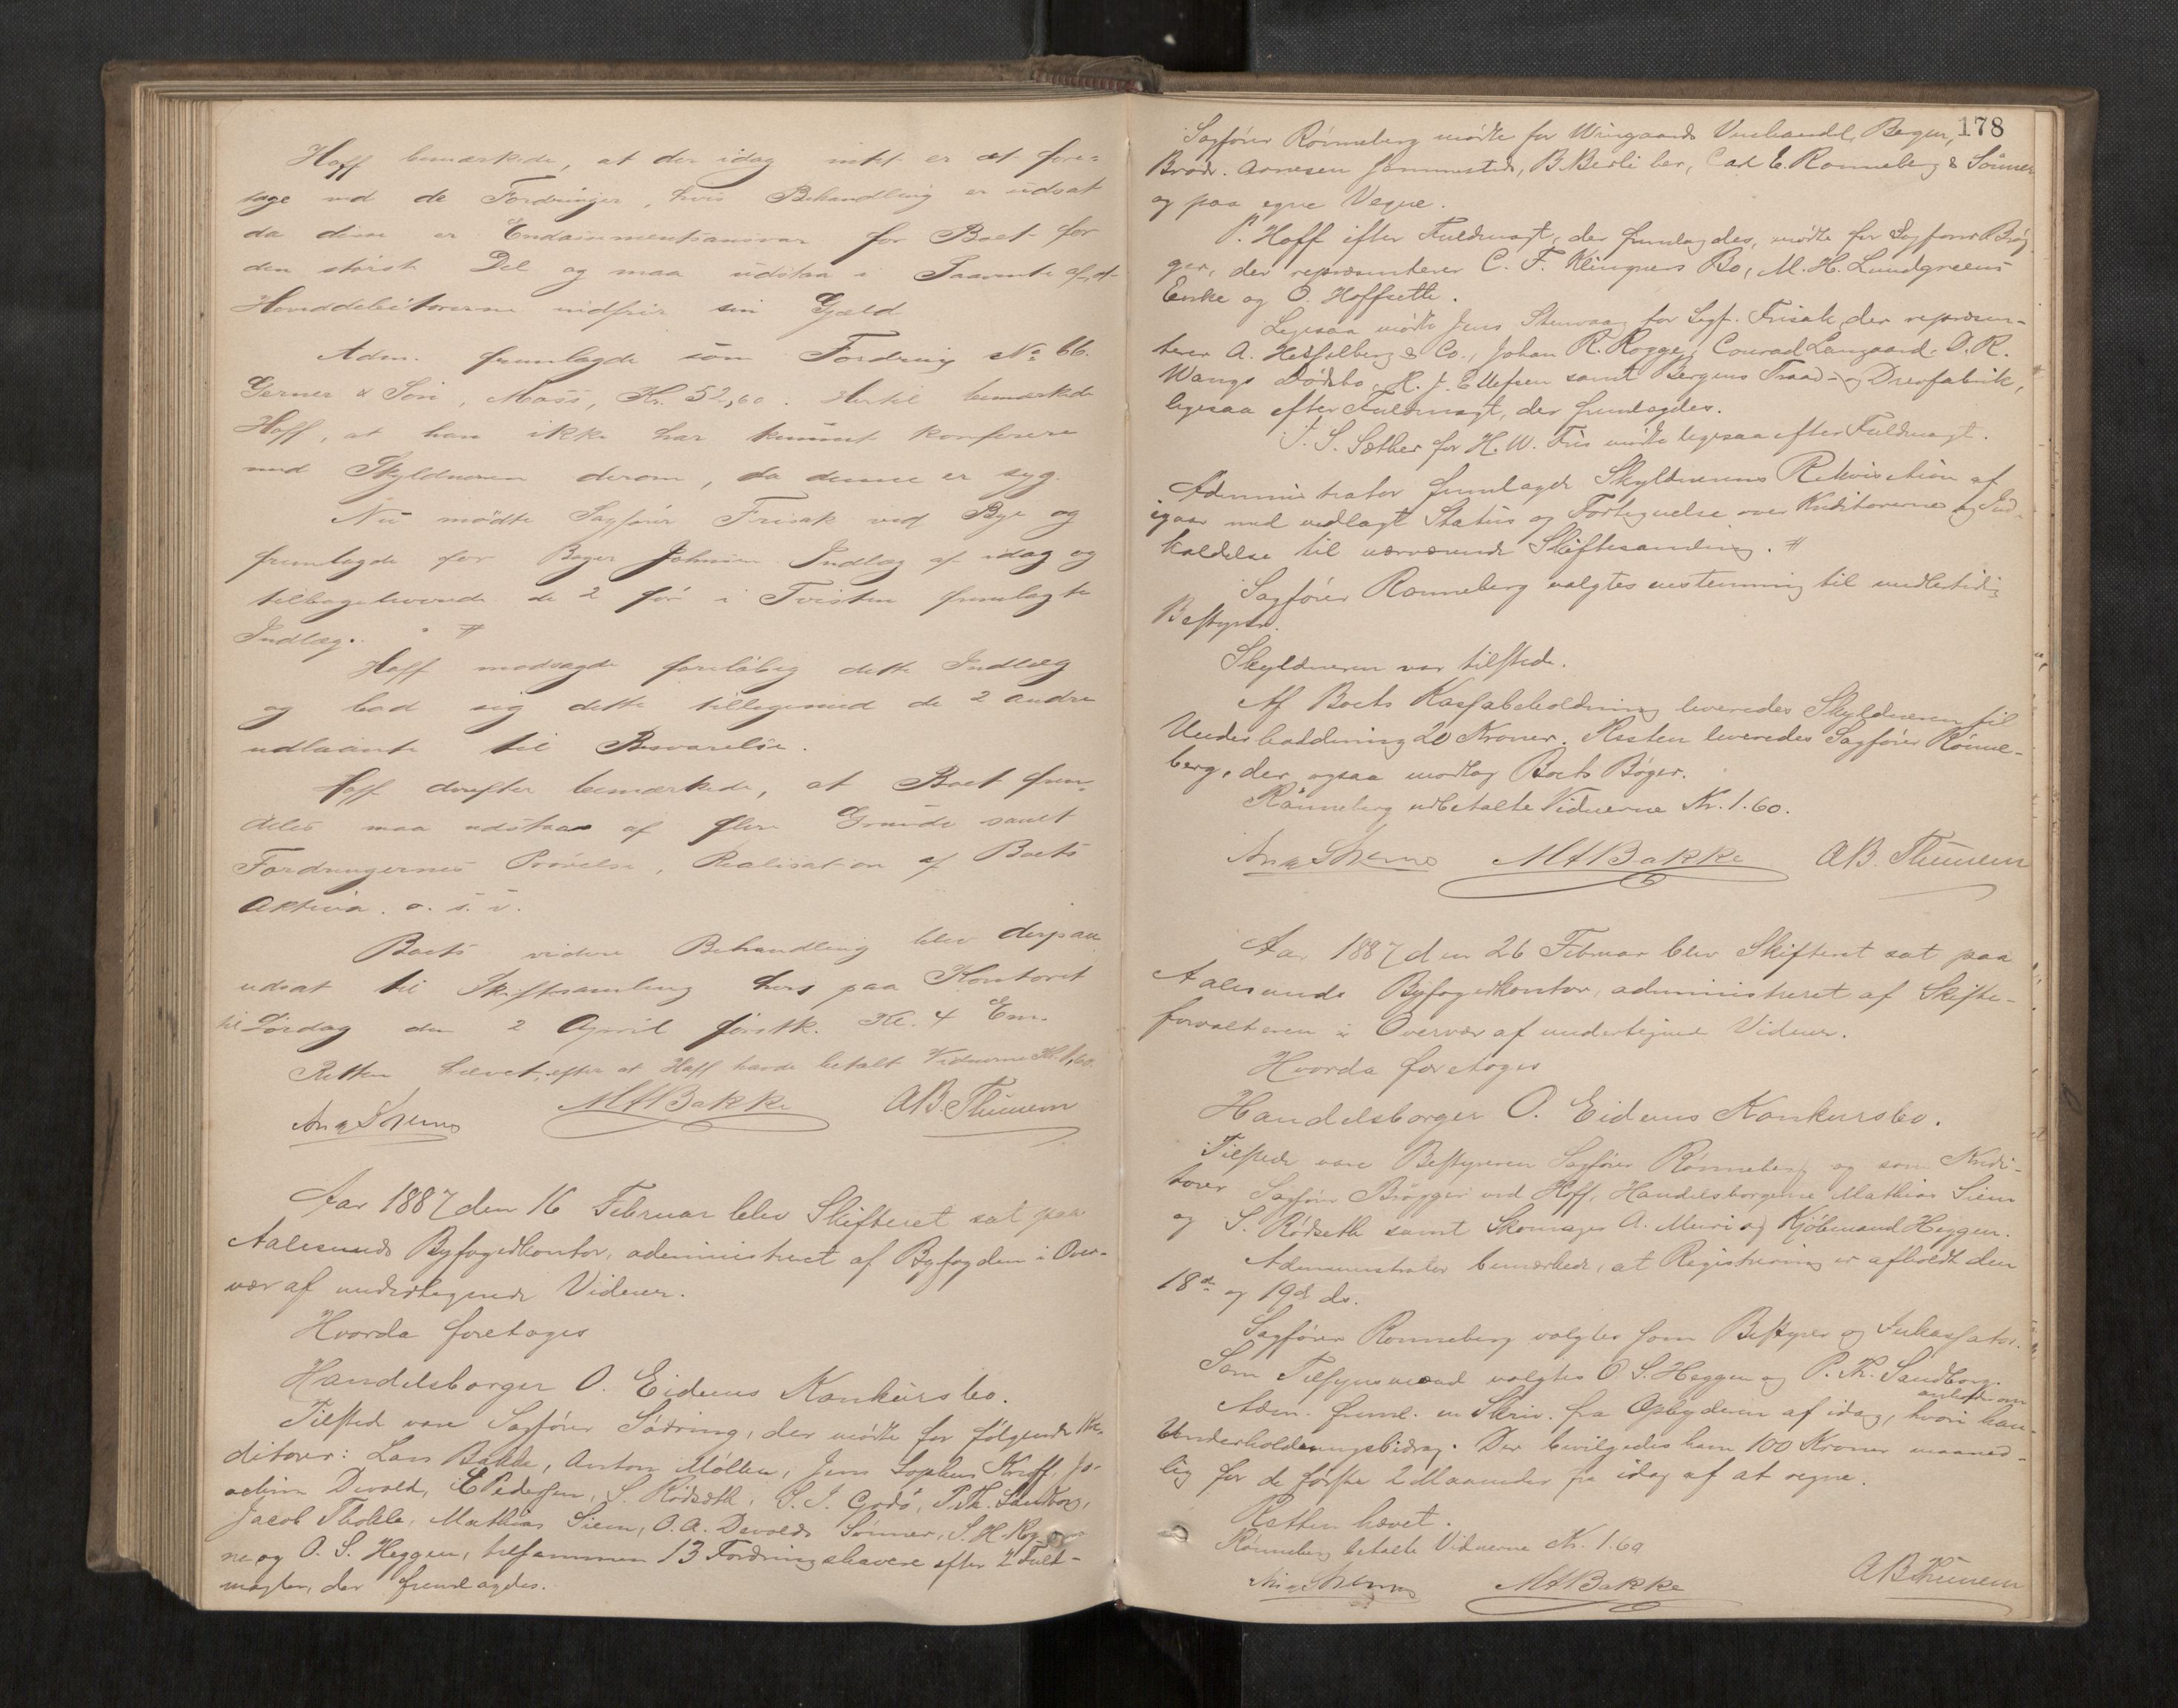 Hoff bemærkede, at der idag intet er at fore-
tage ved de Fordringer, hvis Behandling er udsat
da disse er Endossementsansvar for Boet for
den største Del og maa udstaa i Paavente af, at
Hovddebitorerne indfrir sin Gjæld
Adm. fremlagde som Fordring No 66.
Gerner & Søn, Moss, Kr. 52,60. Hertil bemærkede
Hoff, at han ikke har kunnet konferere
med Skyldneren derom, da denne er syg.
Nu mødte Sagfører Frisak ved Bye og
fremlagde for Bager Johnsen Indlæg af idag og
tilbageleverede de 2 før i Tvisten fremlagte
Indlæg. #
Hoff modsagde foreløbig dette Indlæg
og bad sig dette tilligemed de 2 andre
udlaante til Besvarelse.
Hoff derefter bemærkede, at Boet frem-
deles maa udstaa af flere Grunde samt
Fordringernes Prøvelse, Realisation af Boets
Aktiva o. s. v.
Boets videre Behandling blev derpaa
udsat til Skiftesamling hers paa Kontoret
til Lørdag den 2 April førstk. Kl. 4 Em.
Retten hævet, efter at Hoff havde betalt Vidnerne Kr. 1,60.
MABakke AB. Thunem
Aar 1887 den 16 Februar blev Skifteret sat paa
Aalesunds Byfogedkontor, administreret af Byfogden i Over-
vær af undertegnede Vidner.
Hvorda foretoges
Handelsborger O. Eidems Konkursbo.
Tilstede vare Sagfører Sødring, der mødte for følgende Kre-
ditorer: Lars Bakke, Anton Møller, Jens Sophus Knoff, Jo-
achim Devold, E Pedersen, S. Rødseth, S. J. Godø, P. Th. Sandborg,
Jacob Tholle, Mathias Siem, O. A. Devolds Sønner, S. H.
ne og O. S. Heggen, tilsammen 13 Fordringshavere efter 2 Fuld-
magter, der fremlagdes.
178
Sagfører Rønneberg mødte for Wingaards Vinhandel, Bergen,
Brødr. Arnesen B. Berli her, Carl E. Rønneberg & Sønner
og paa egne Vegne.
P. Hoff efter Fuldmagt, der fremlagdes, mødte for Sagfører Brøg-
ger, der repræsenterer C. F. Klingners Bo, M. H. Lundgreens
Enke og O. Hoffseth.
Ligesaa mødte Jens Stenvaag for Sagf. Frisak der repræsen-
terer A. Hesselberg & Co., Johan R. Rogge, Conrad Langaard. O. R.
Wangs Dødsbo, H. J. Ellefsen samt Bergens Traad- og Drevfabrik,
ligesaa efter Fuldmagt, der fremlagdes.
S. Sæther for H. W. Fris mødte ligesaa efter Fuldmagt.
Administrator fremlagde Skyldnerens Rekvisition af
igaar med vedlagt Status og Fortegnelse over Kreditorerne og Ind-
kaldelse til nærværende Skiftesamling. #
Sagfører Rønneberg valgtes enstemmig til midlertidig
Bestyrer.
Skyldneren var tilstede.
Af Boets Kassabeholdning leveredes Skyldneren til
Underholdning 20 Kroner. Resten leveredes Sagfører Rønne-
berg, der ogsaa modtog Boets Bøger.
Rønneberg udbetalte Vidnerne Kr. 1.60.
MABakke AB. Thunem
Aar 1887 den 26 Februar blev Skifteret sat paa
Aalesunds Byfogedkontor, administreret af Skifte-
forvalteren i Overvær af undertegnede Vidner.
Hvorda foretoges
Handelsborger O. Eidems Konkursbo.
Tilstede vare Bestyreren Sagfører Rønneberg og som Kredi-
torer Sagfører Brøgger ved Hoff, Handelsborgerne Mathias Siem
og S. Rødseth samt Skomager A. Muri og Kjøbmand Heggen.
Administrator bemærkede, at Registrering er afholdt den
18de og 19de ds.
Sagfører Rønneberg valgtes som Bestyrer og Inkassator.
Som Tilsynsmænd valgtes O. S. Heggen og P. Th. Sandborg.
Adm. freml. en Skriv. fra Opbyderen af idag, hvori han anholder om
Underholdningsbidrag. Der bevilgedes ham 100 Kroner maaned-
lig for de første 2 Maaneder fra idag af at regne.
Retten hævet.
Rønneberg betalte Vidnerne Kr. 1.60
MABakke AB Thunem